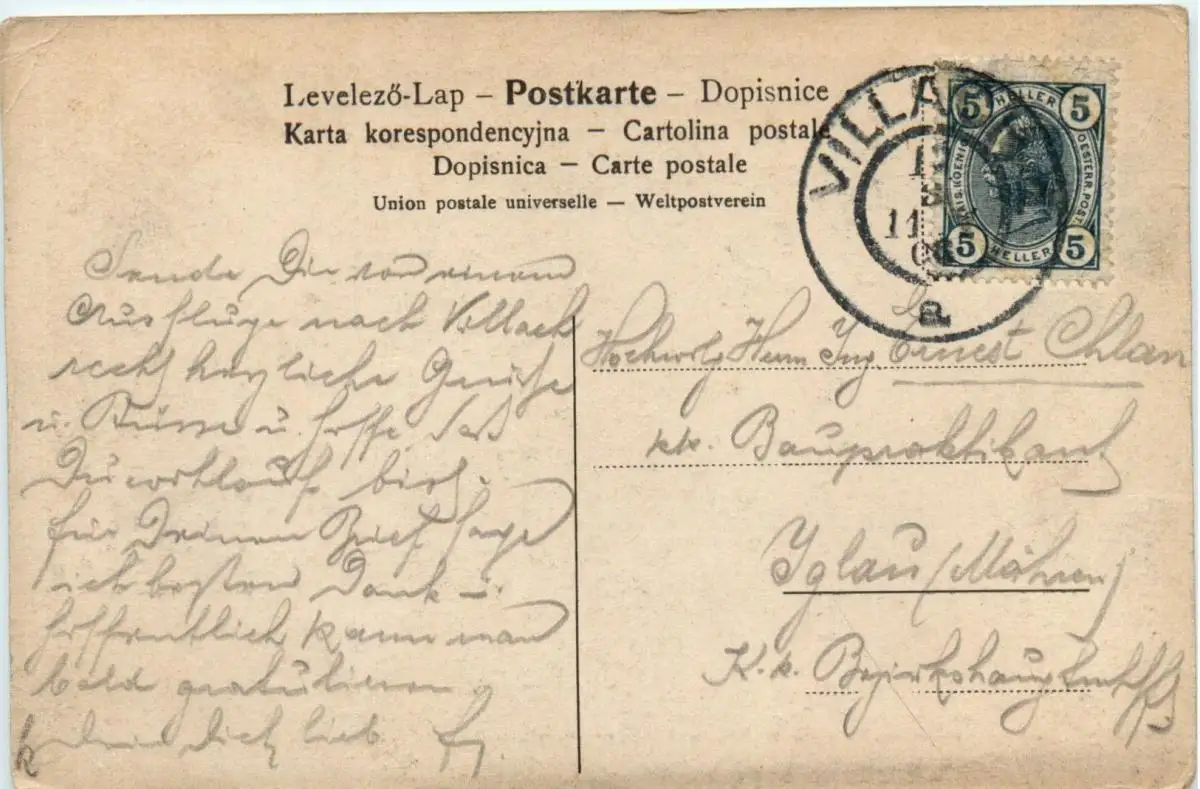 Levelező-Lap – Postkarte – Dopisnice
Karta korespondencyjna – Cartolina postale
Dopisnica – Carte postale
Union postale universelle – Weltpostverein
5 HELLER 5
KAIS. KOENIGL. OESTERR. POST.
5 HELLER 5
VILLACH
11
08
a
Sende Dir von einem
Ausfluge nach Villach
recht herzliche Grüße
u. Küsse u. hoffe daß
Du wohlauf bist.
für Deinen Brief sage
ich besten Dank u.
hoffentlich kann man
bald gratulieren
Dich lieb
Hochwolg Herrn Ing. Ernest Chlan
kk. Baupraktikant
Iglau (Mähren)
K. k. Bezirkshauptmschft